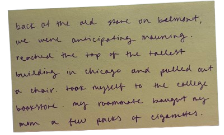 back at the old store on belmont,
we were anticipating
reached the top of the tallest
building in chicago and pulled out
a chair. took myself to the college
bookstore. my roommate bought my
mom a few packs of cigarettes.